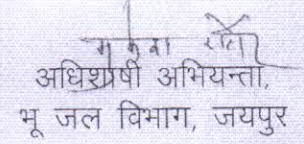 अधिशाषी अभियन्ता,
भू जल विभाग, जयपुर